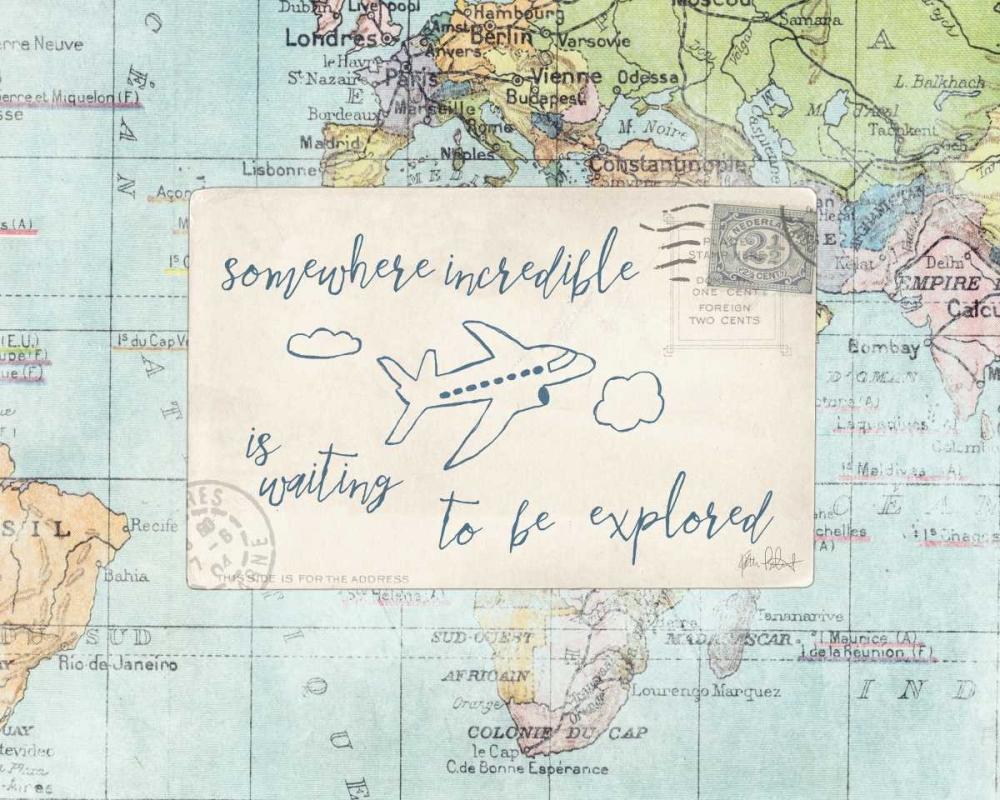 Dublin Liverpool
Hambourg
Moscou
Samara
Londres
Amst.
Berlin
Varsovie
A
Anvers
erre Neuve
le Havre
Paris
Vienne
Odessa
L. Balkhach
St Nazaire
Budapest
erre et Miquelon (F)
Bordeaux
Marseille
M. Noire
Tachkent
Rome
Madrid
Naples
Constantinople
Lisbonne
Açor
s (A)
NEDERLAND
2½
2½ CENT
Kelat
Delhi
EMPIRE
Calcu
somewhere incredible
ONE CENT
FOREIGN
TWO CENTS
(E.U.)
upe (F)
ue (F)
Is du Cap Ve
Bombay
is
waiting
Laquedives
Is Maldives (A)
to be explored
SIL
Recife
chelles
(A)
Is Chagos
Bahia
THIS SIDE IS FOR THE ADDRESS
Ste Hélène (A)
Tananarive
DU SUD
SUD-OUEST
MADAGASCAR
I Maurice (A)
I de la Réunion (F)
Rio de Janeiro
AFRICAIN
Orange
Lourenço Marquez
I N D
COLONIE DU CAP
le Cap
C. de Bonne Espérance
UAY
tevideo